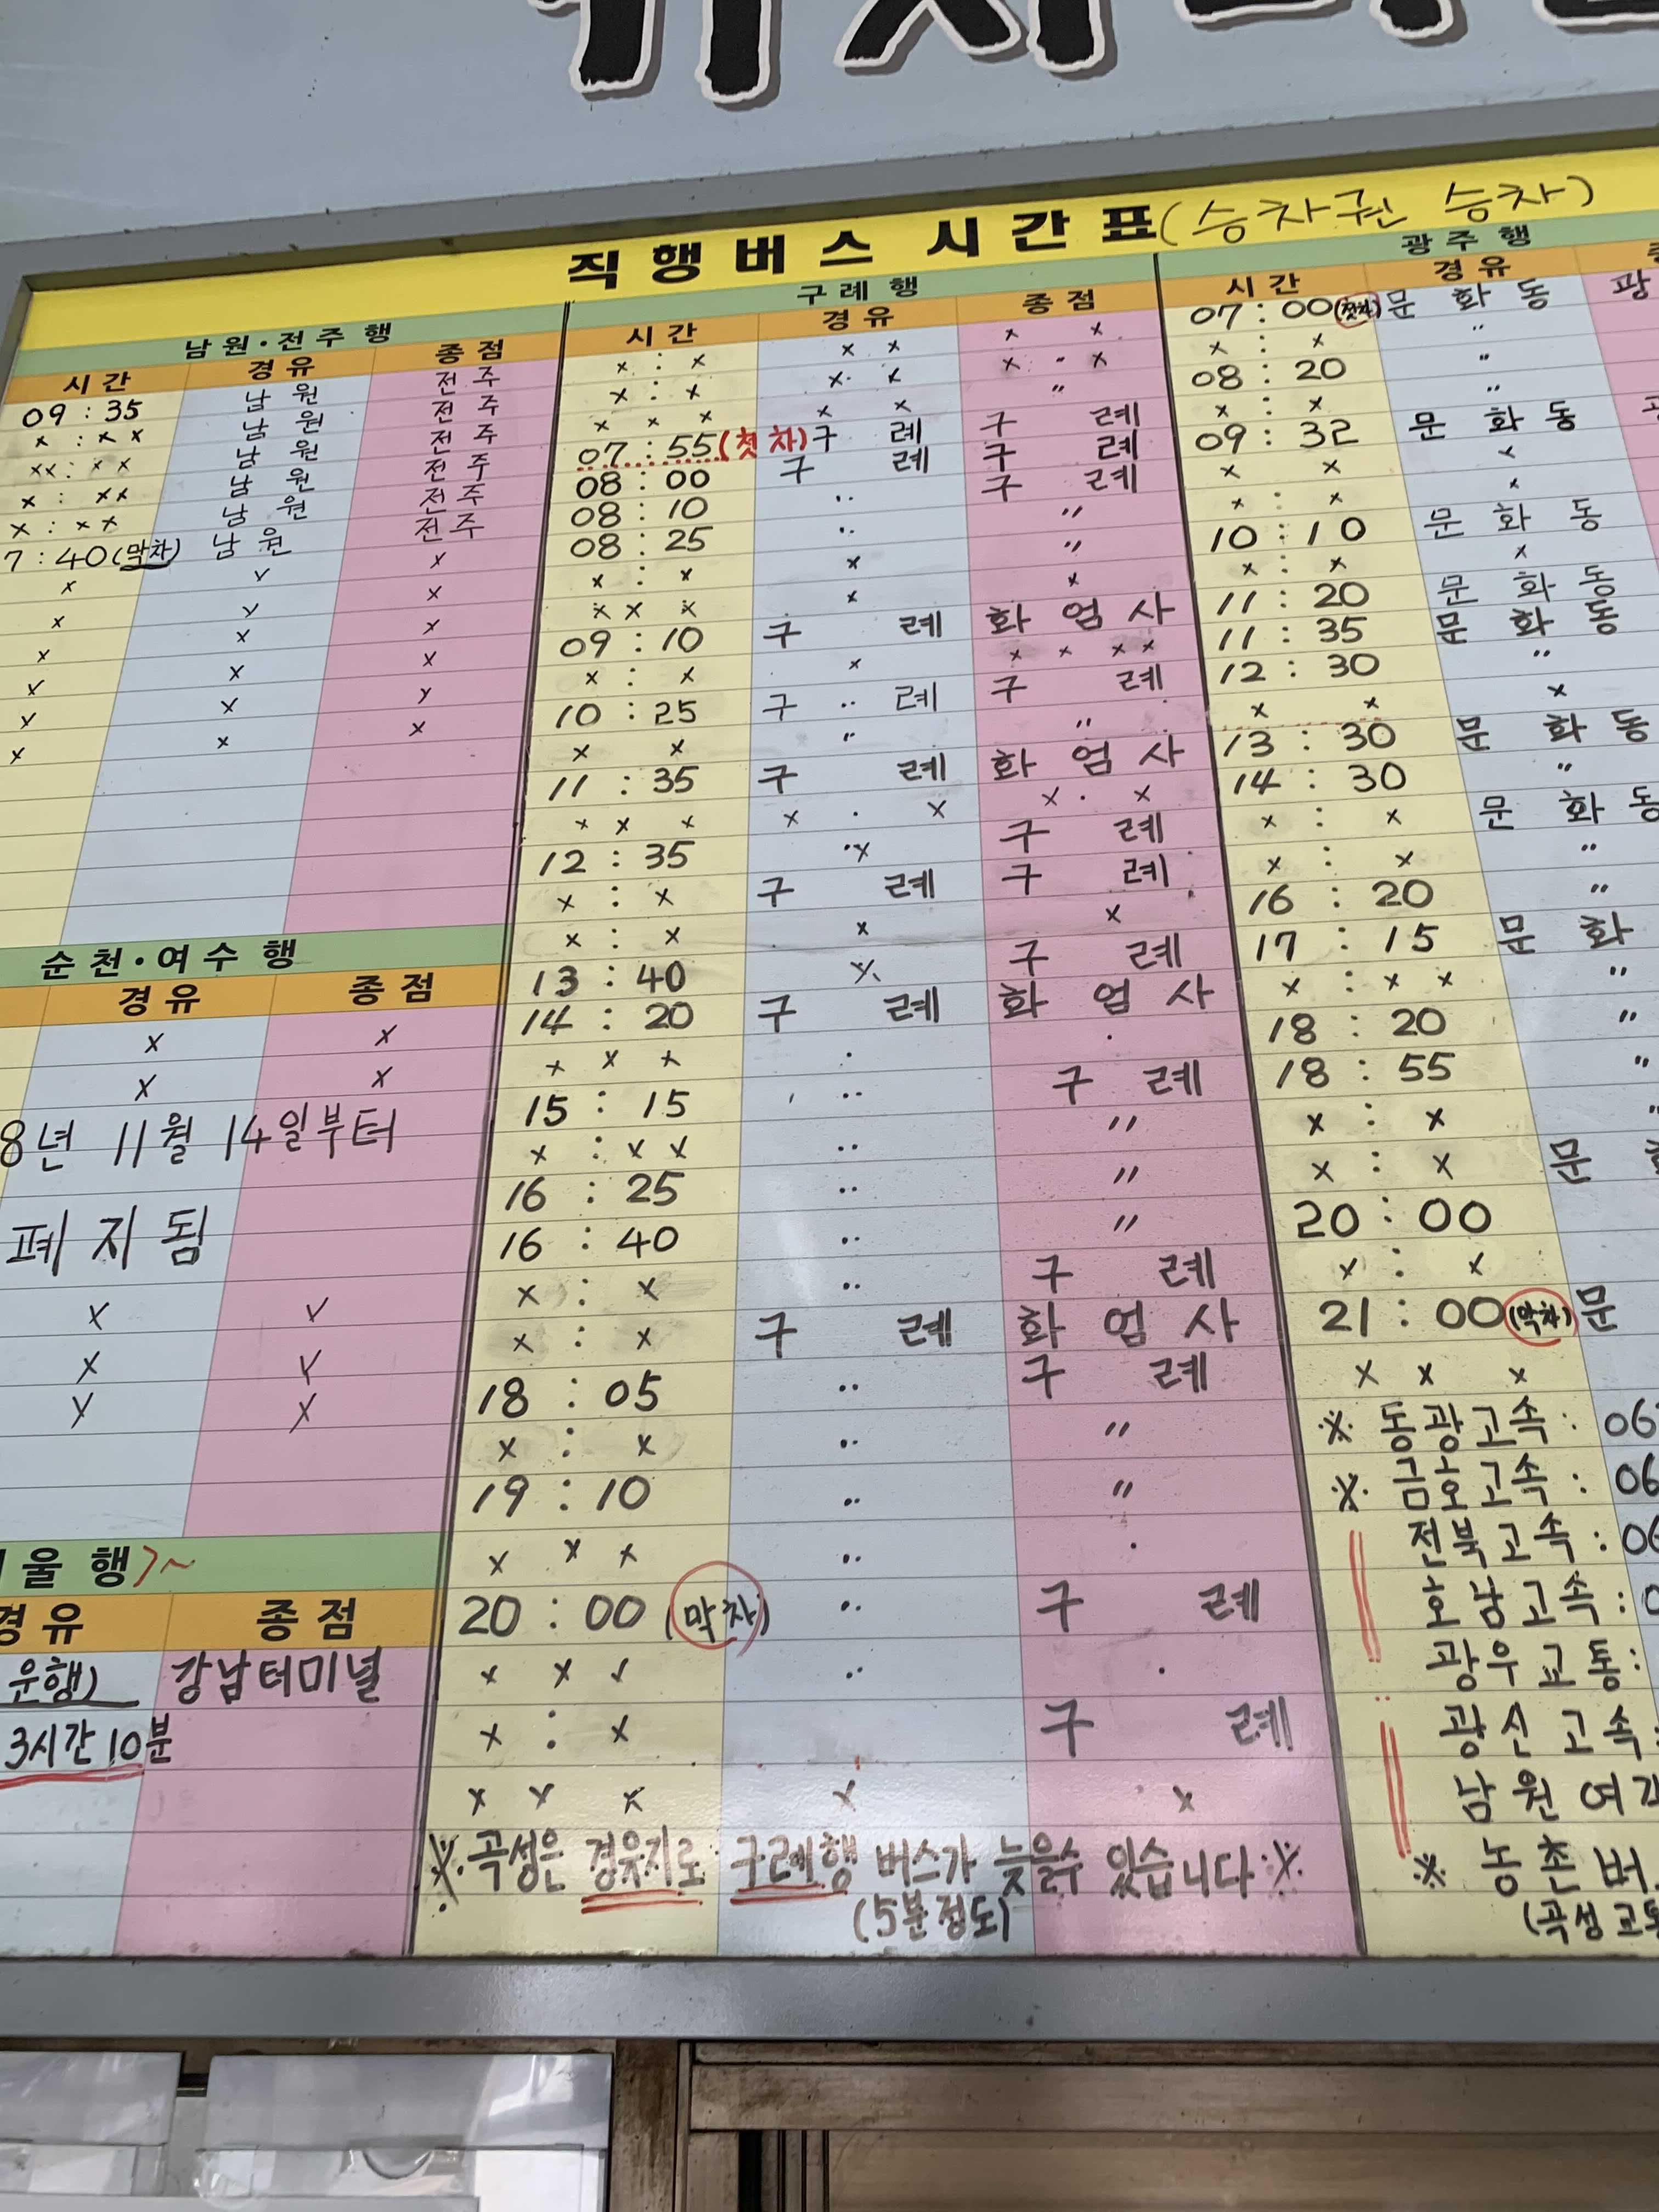 직행버스 시간표(승차권 승차)
남원·전주행
시간 경유 종점
09:35 남원 전주
x : x x 남원 전주
x x : x x 남원 전주
x : x x 남원 전주
x : x x 남원 전주
7:40(막차) 남원 전주
순천·여수행
경유 종점
x x
x x
8년 11월 14일부터
폐지됨
울행
경유 종점
운행) 강남터미널
3시간10분
구례행
시간 경유 종점
x : x x x x x
x : x x x x x
x x x x x 〃
07:55(첫차) 구례 구례
08:00 구례 구례
08:10 〃 구례
08:25 〃 〃
x : x x 〃
x x x x x
09:10 구례 화엄사
x : x x x x x x
10:25 구례 구례
x x 〃 〃
11:35 구례 화엄사
x x x x x x x
12:35 x 구례
x : x 구례 구례
x : x x x
13:40 x 구례
14:20 구례 화엄사
x x x
15:15 〃 구례
x : x x 〃 〃
16:25 〃 〃
16:40 〃 〃
x : x 〃 구례
x : x 구례 화엄사
18:05 〃 구례
x : x 〃 〃
19:10 〃 〃
x x x 〃
20:00(막차) 〃 구례
x x x 〃
x : x 구례
x x x x x
※곡성은 경유지로 구례행 버스가 늦을수 있습니다※
(5분정도)
광주행
시간 경유
07:00(첫차) 문화동
x : x 〃
08:20 〃
x : x 〃
09:32 문화동
x x x
x : x x
10:10 문화동
x : x x
11:20 문화동
11:35 문화동
12:30 〃
x x x
13:30 문화동
14:30 〃
x : x 문화동
x : x 〃
16:20 〃
17:15 문화
x : x x 〃
18:20 〃
18:55 〃
x : x 〃
x : x 문
20:00
x : x
21:00(막차) 문
x x x
※ 동광고속: 06
※ 금호고속: 06
전북고속: 06
호남고속: 0
광우교통:
광신고속:
남원여
※ 농촌버
(곡성교통